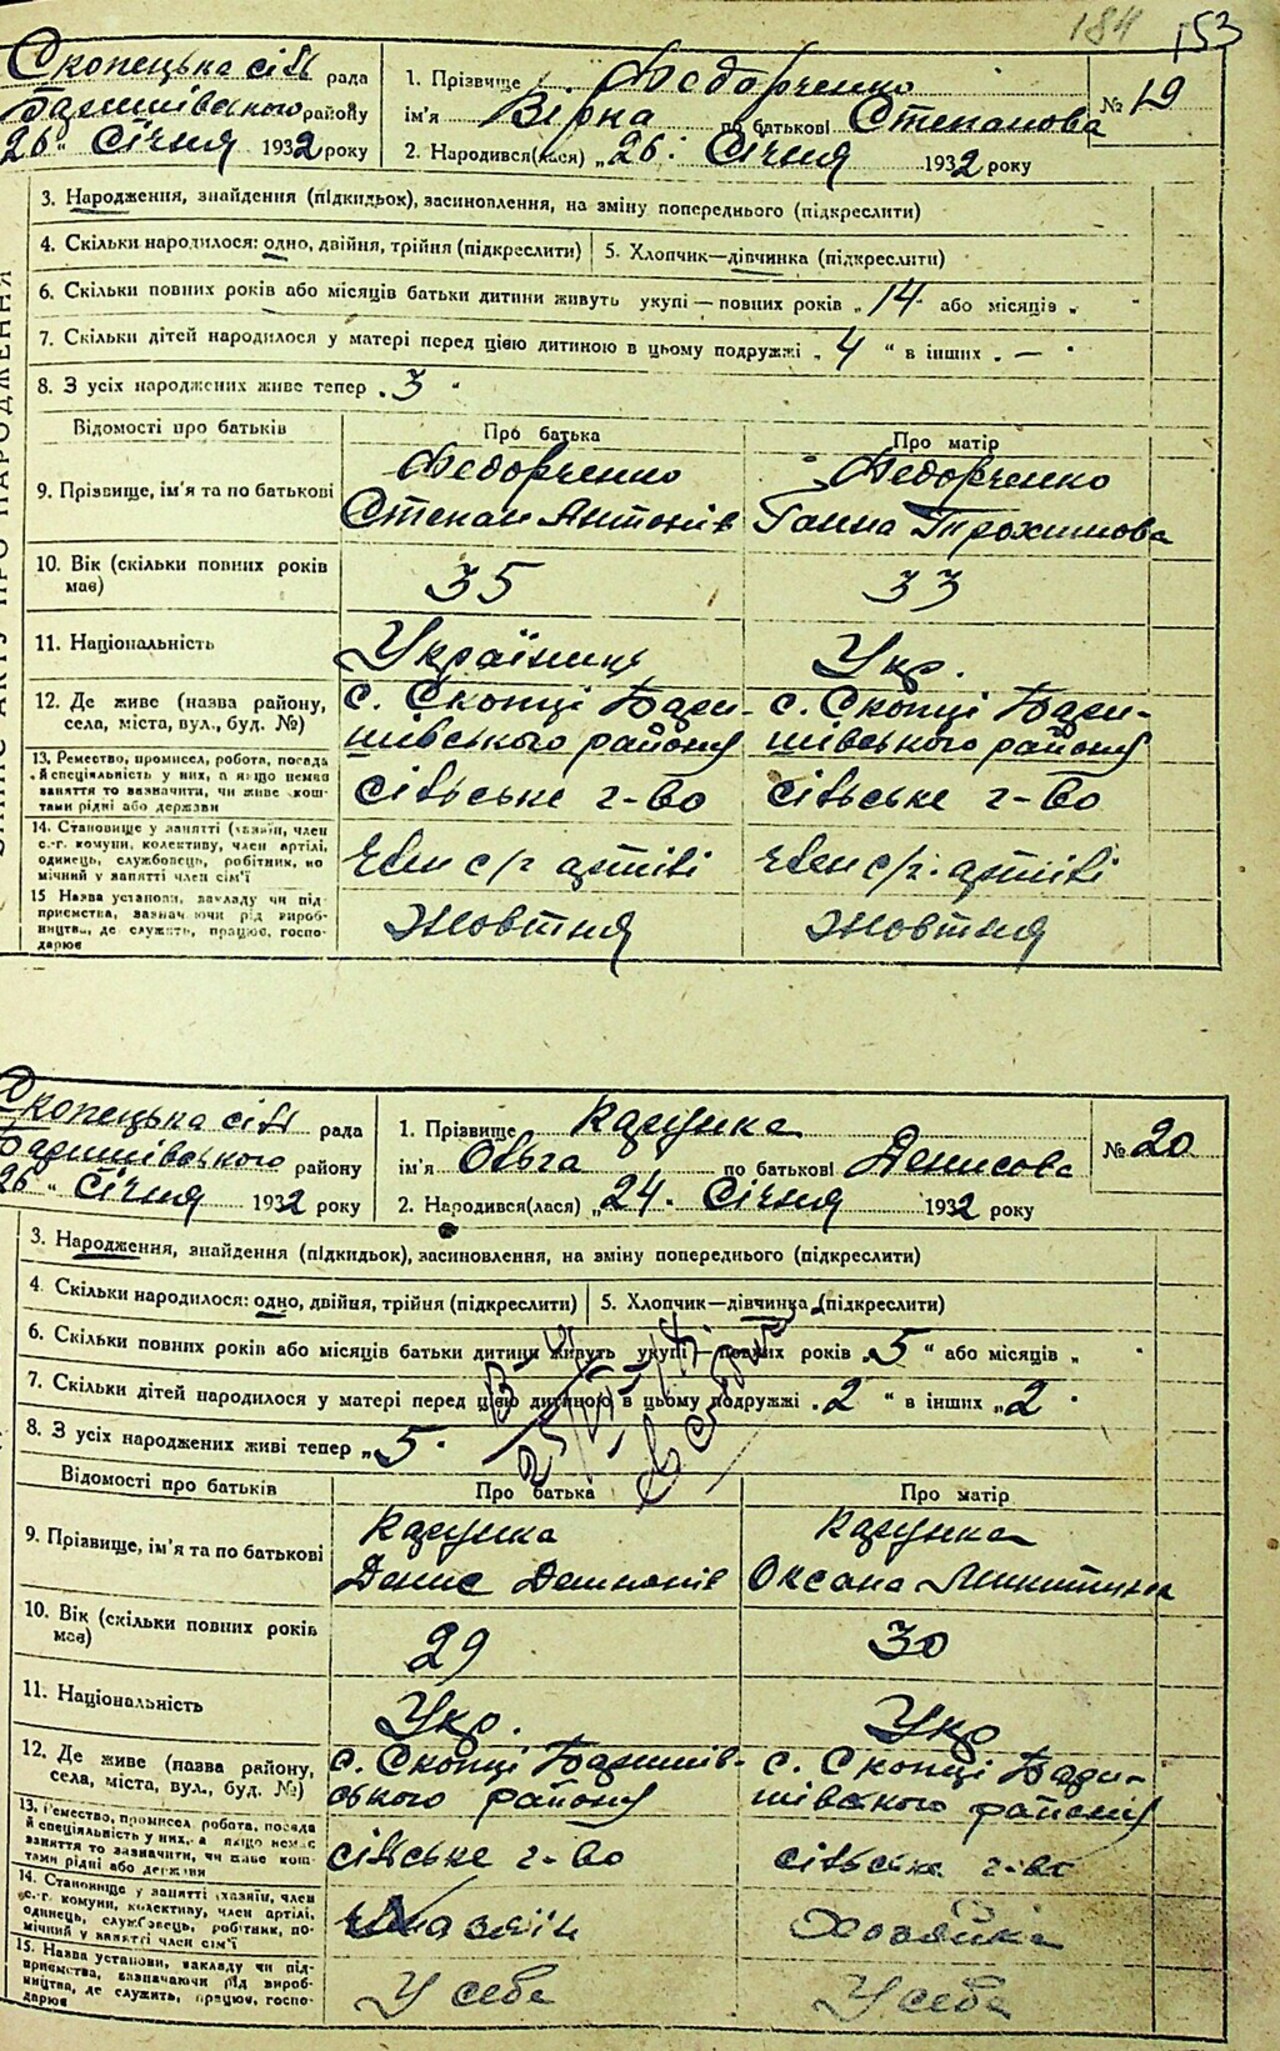 184 153
Скопецька сіль рада
Баришівського району
26 " Січня 1932 року
1. Прізвище Федорченко
ім'я Вірка по батькові Степанова
2. Народився(лася) „ 26 . Січня 1932 року
№ 19
3. Народження, знайдення (підкидьок), засиновлення, на зміну попереднього (підкреслити)
4. Скільки народилося: одно, двійня, трійня (підкреслити) 5. Хлопчик—дівчинка (підкреслити)
6. Скільки повних років або місяців батьки дитини живуть укупі — повних років „ 14 " або місяців „ "
7. Скільки дітей народилося у матері перед цією дитиною в цьому подружжі „ 4 " в інших „ — "
8. З усіх народжених живе тепер „ 3 "
Відомості про батьків Про батька Про матір
9. Прізвище, ім'я та по батькові
Федорченко
Степан Антонів
Федорченко
Ганна Трохимова
10. Вік (скільки повних років має)
35 33
11. Національність
Українці Укр.
12. Де живе (назва району,
села, міста, вул., буд. №)
с. Скопці Бари-
шівського району
с. Скопці Бари-
шівського району
13. Ремество, промисел, робота, посада
й спеціяльність у них, а якщо немає
заняття то вазначити, чи живе кош-
тами рідні або держави
сільське г-во сільське г-во
14. Становище у занятті (хазяїн, член
с.-г. комуни, колективу, член артілі,
одинець, службовець, робітник, по
мічний у занятті член сім'ї
член с/г артілі член с/г. артілі
15 Назва установи, закладу чи під
приємства, вазнач ючи рід вироб-
ництва, де служить, працює, госпо-
дарює
Жовтня Жовтня
Скопецька сіль рада
Баришівського району
26 " Січня 1932 року
1. Прізвище Карпука
ім'я Ольга по батькові Денисова
2. Народився(лася) „ 24 . Січня 1932 року
№ 20
3. Народження, знайдення (підкидьок), засиновлення, на зміну попереднього (підкреслити)
4. Скільки народилося: одно, двійня, трійня (підкреслити) 5. Хлопчик—дівчинка (підкреслити)
6. Скільки повних років або місяців батьки дитини живуть укупі — повних років „ 5 " або місяців „ "
7. Скільки дітей народилося у матері перед цією дитиною в цьому подружжі „ 2 " в інших „ 2 "
8. З усіх народжених живі тепер „ 5 "
Відомості про батьків Про батька Про матір
9. Прізвище, ім'я та по батькові
Карпука
Денис
Карпука
Оксана Микитина
10. Вік (скільки повних років має)
29 30
11. Національність
Укр. Укр
12. Де живе (назва району,
села, міста, вул., буд. №)
с. Скопці Баришів-
ського району
с. Скопці Бари-
шівського району
13. Ремество, промисел, робота, посада
й спеціяльність у них, а якщо немає
заняття то вазначити, чи живе кош-
тами рідні або держави
сільське г-во сільське г-во
14. Становище у занятті (хазяїн, член
с.-г. комуни, колективу, член артілі,
одинець, службовець, робітник, по-
мічний у занятті член сім'ї
Хазяїн Хозяйка
15. Назва установи, закладу чи під-
приємства, вазначаючи рід вироб-
ництва, де служить, працює, госпо-
дарює
У себе У себе